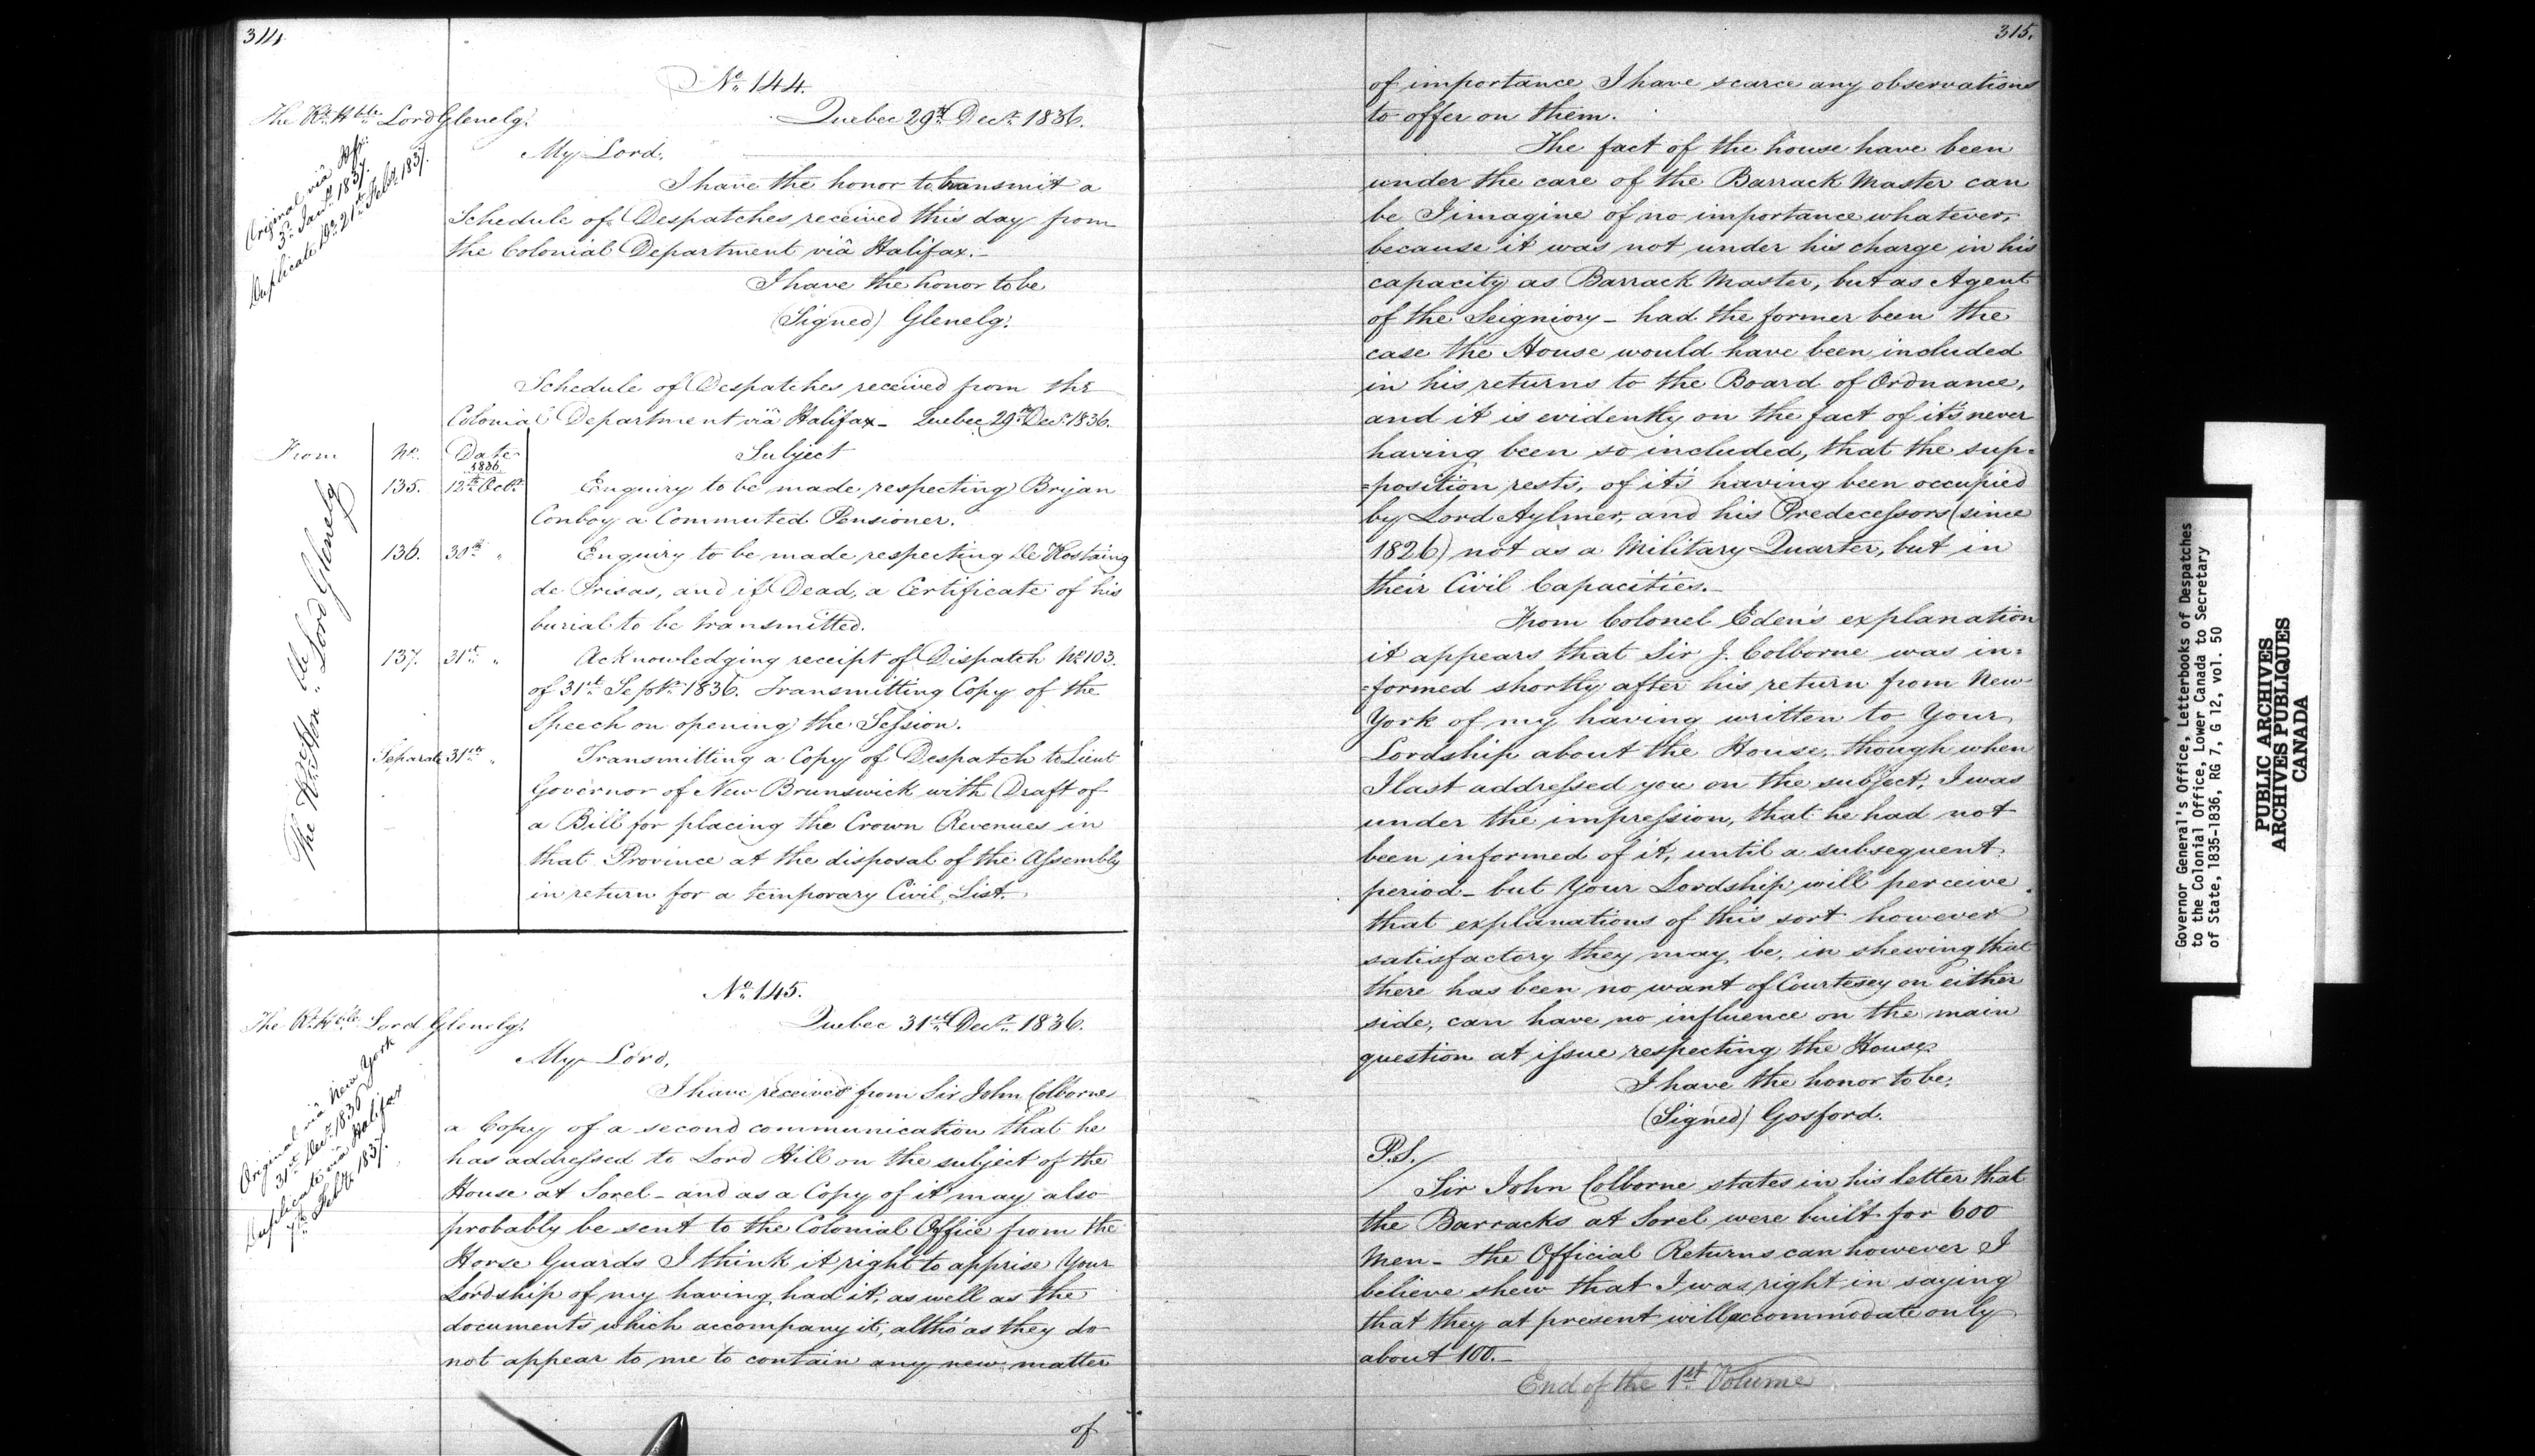 314.
No. 144.
The Rt. Hble. Lord Glenelg.
Quebec 29th Decr. 1836.
Original viâ Hfx.
3d. Jany. 1837.
Duplicate Do. 21st Feby. 1837.
My Lord,
I have the honor to transmit a
Schedule of Despatches received this day from
the Colonial Department viâ Halifax.-
I have the honor to be
(Signed) Glenelg.
Schedule of Despatches received from the
Colonial Department viâ Halifax- Quebec 29th Decr. 1836.
From No. Date Subject
1836
The Rt. Honble. Lord Glenelg
135. 12th Octr. Enquiry to be made respecting Bryan
Conboy a Commuted Pensioner.
136. 30th " Enquiry to be made respecting De Hostaing
de Frisas, and if Dead, a Certificate of his
burial to be transmitted.
137. 31st " Acknowledging receipt of Dispatch No. 103.
of 31st Septr. 1836. Transmitting Copy of the
Speech on opening the Session.
Separate 31st " Transmitting a Copy of Despatch to Lieut
Governor of New Brunswick with Draft of
a Bill for placing the Crown Revenues in
that Province at the disposal of the Assembly
in return for a temporary Civil List.
No. 145.
The Rt. Hble. Lord Glenelg.
Quebec 31st Decr. 1836.
Original viâ New York
31st Decr. 1836
Duplicate viâ Halifax
7th Feby. 1837.
My Lord,
I have received from Sir John Colborne
a Copy of a second communication that he
has addressed to Lord Hill on the subject of the
House at Sorel - and as a Copy of it may also
probably be sent to the Colonial Office from the
Horse Guards I think it right to apprise Your
Lordship of my having had it, as well as the
documents which accompany it, altho' as they do
not appear to me to contain any new matter
of
315.
of importance I have scarce any observations
to offer on them.
The fact of the house have been
under the care of the Barrack Master can
be I imagine of no importance whatever,
because it was not under his charge in his
capacity as Barrack Master, but as Agent
of the Seigniory - had the former been the
case the House would have been included
in his returns to the Board of Ordnance,
and it is evidently on the fact of it's never
having been so included, that the sup=
=position rests, of it's having been occupied
by Lord Aylmer, and his Predecessors (since
1826) not as a Military Quarter, but in
their Civil Capacities.-
From Colonel Eden's explanation
it appears that Sir J. Colborne was in=
=formed shortly after his return from New
York of my having written to Your
Lordship about the House, though when
I last addressed you on the subject, I was
under the impression, that he had not
been informed of it, until a subsequent
period - but Your Lordship will perceive
that explanations of this sort however
satisfactory they may be, in shewing that
there has been no want of Courtesey on either
side, can have no influence on the main
question at issue respecting the House.
I have the honor to be,
(Signed) Gosford.
P.S./
Sir John Colborne states in his letter that
the Barracks at Sorel were built for 600
Men - the Official Returns can however I
believe shew that I was right in saying
that they at present will accommodate only
about 100.-
End of the 1st Volume
Governor General's Office, Letterbooks of Despatches
to the Colonial Office, Lower Canada to Secretary
of State, 1835-1836, RG 7, G 12, vol. 50
PUBLIC ARCHIVES
ARCHIVES PUBLIQUES
CANADA